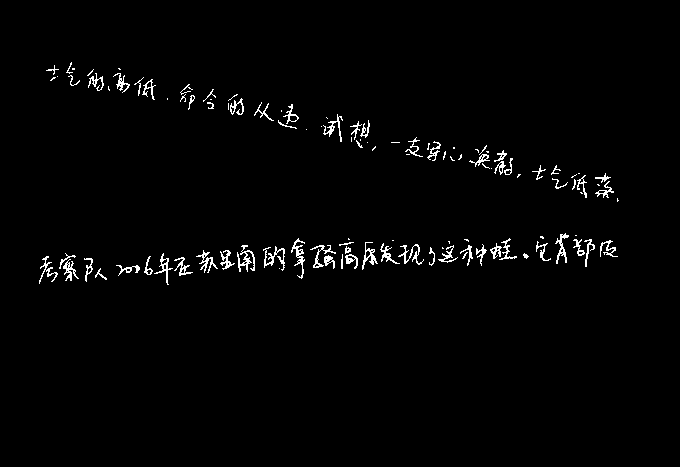 士气的高低、命令的从违. 试想，一支军心涣散，士气低落、
考察队2006年在苏里南的拿骚高原发现了这种蛙。它背部皮